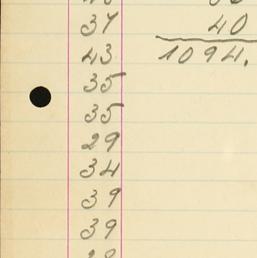 37 40
43 1094.
35
35
29
34
39
39